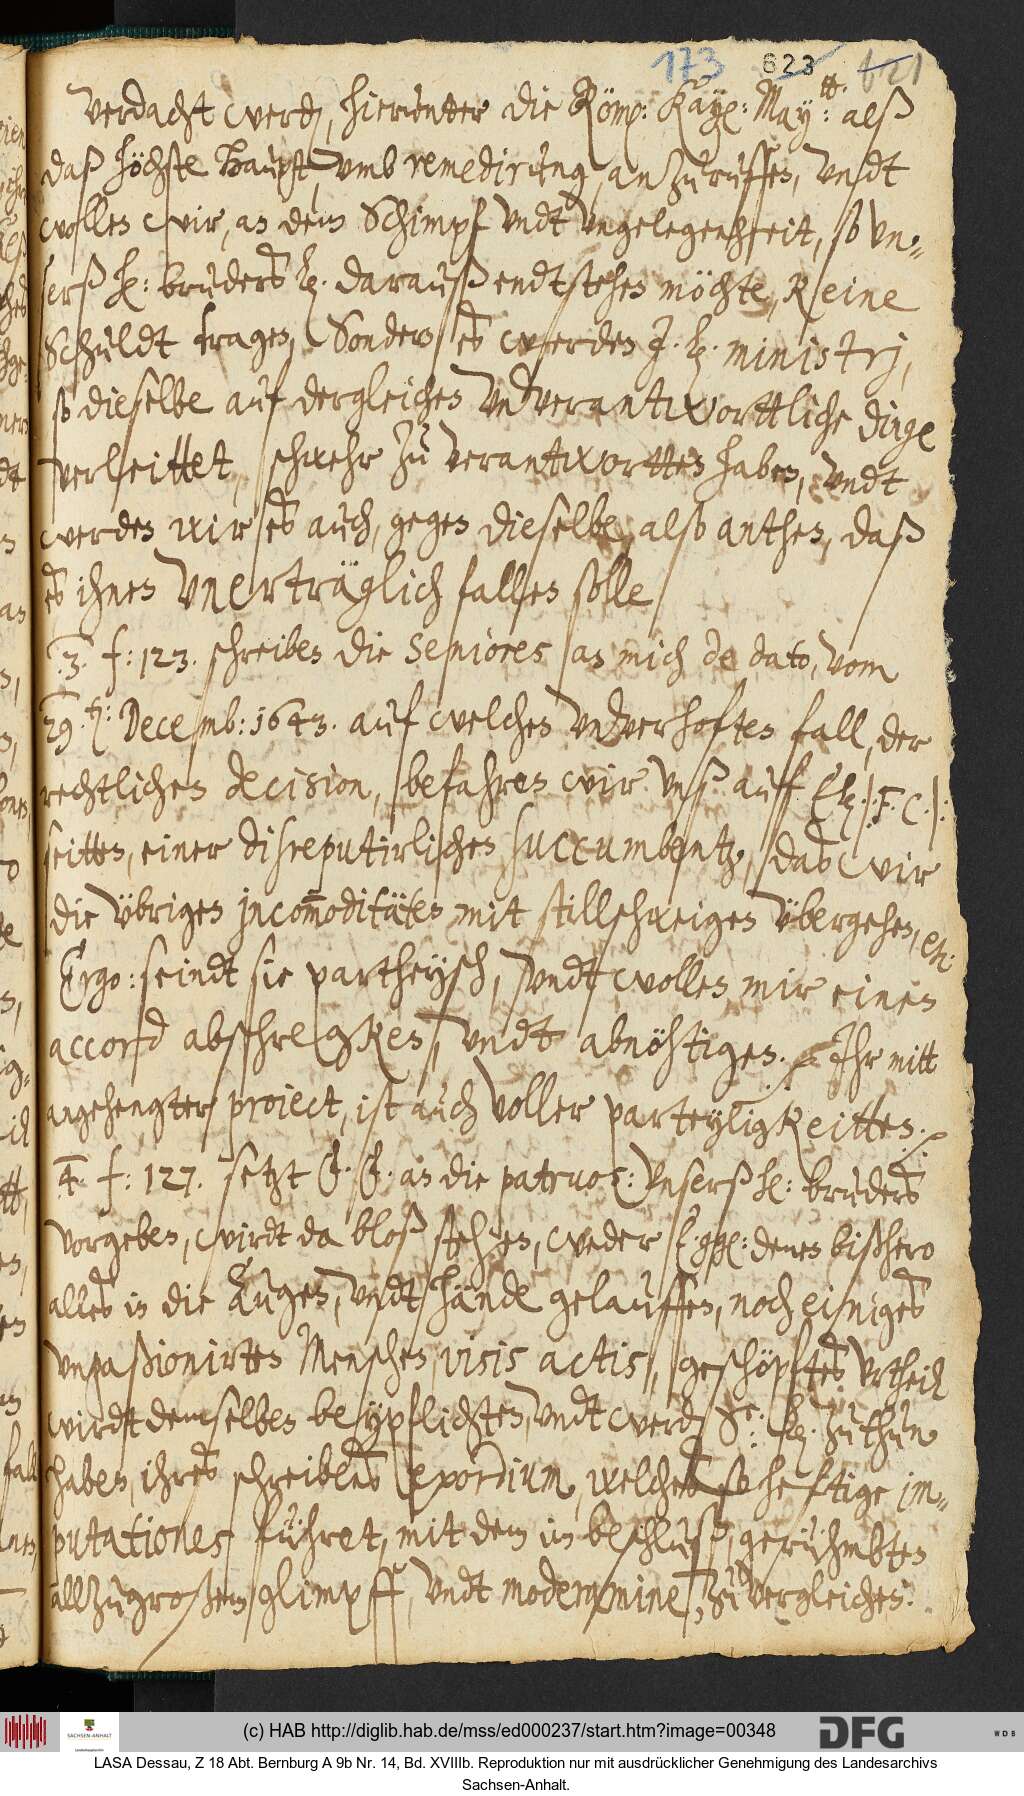 173 623 621
verdacht werden, hierunter die Römi: Kay: May:tt. alß
daß höchste Haupt, vmb remedirung, anzuruffen, vndt
wollen wir, an dem Schimpf vndt vngelegenheit, so vn„
serß h: bruders L. darauß endtstehen möchte, Keine
Schuldt tragen, Sondern es werden J. L. ministrj,
so dieselbe auf dergleichen vnverantwortliche dinge
verleittet, schwehr zu verantwortten haben, vndt
werden wir es auch, gegen dieselbe, also anthen, daß
es ihnen vnerträglich fallen solle
3. f: 123. schreiben die Seniores an mich de dato, vom
29.t: Decemb: 1643. auf welchen vnverhoften fall, der
rechtlichen decision, befahren wir vnß auff EL /: F. C. /:
seitten, einer disreputirlichen succumbentz, das wir
die vbrigen incom̄oditäten mit stillschweigen vbergehen, etc:
Ergo: seindt sie partheysch, vndt wollen mir einen
accord abschregken, vndt abnöhtigen. Ihr mitt
angehengter project, ist auch voller parteyligkeitten.
4. f: 127. setzt E. E. an die patruos: Vnserß h: bruders
vorgeben, wirdt da bloß stehen, weder denen bißhero
alles in die Augen, vndt hände gelauffen, noch einiges
vnpaßionirten Menschen, visis actis, geschöpftes vrtheil
wirdt demselben beypflichten, vndt werden Sr: L. zu thun
haben, ihres schreibens exordium, welches so heftige im„
putationes führet, mit dem im beschluß, gerühmbten
allzugroßem glimpff, vndt moderamine, zu vergleichen.
(c) HAB http://diglib.hab.de/mss/ed000237/start.htm?image=00348
SACHSEN-ANHALT
DFG
WDB
LASA Dessau, Z 18 Abt. Bernburg A 9b Nr. 14, Bd. XVIIIb. Reproduktion nur mit ausdrücklicher Genehmigung des Landesarchivs
Sachsen-Anhalt.